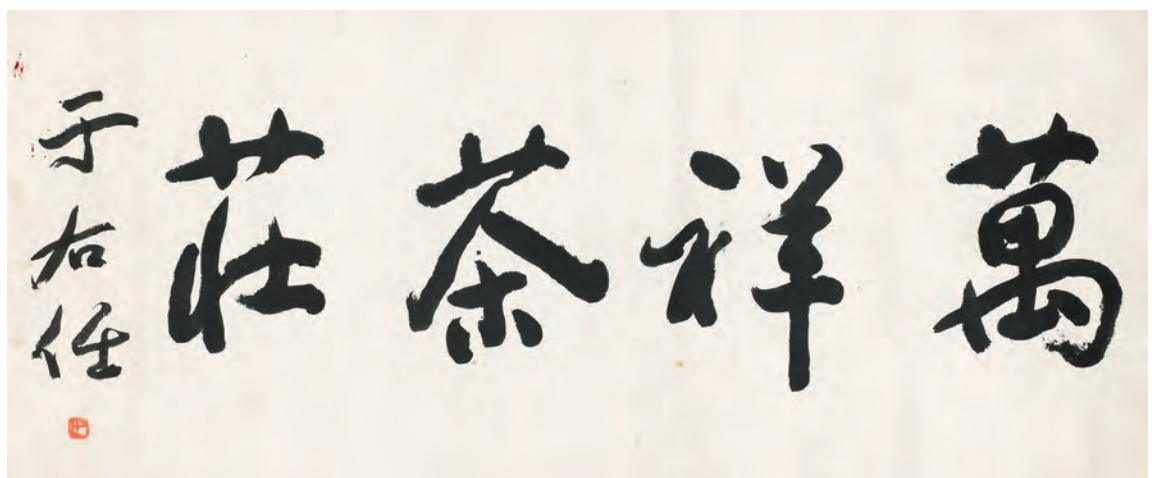 萬祥茶莊
于右任